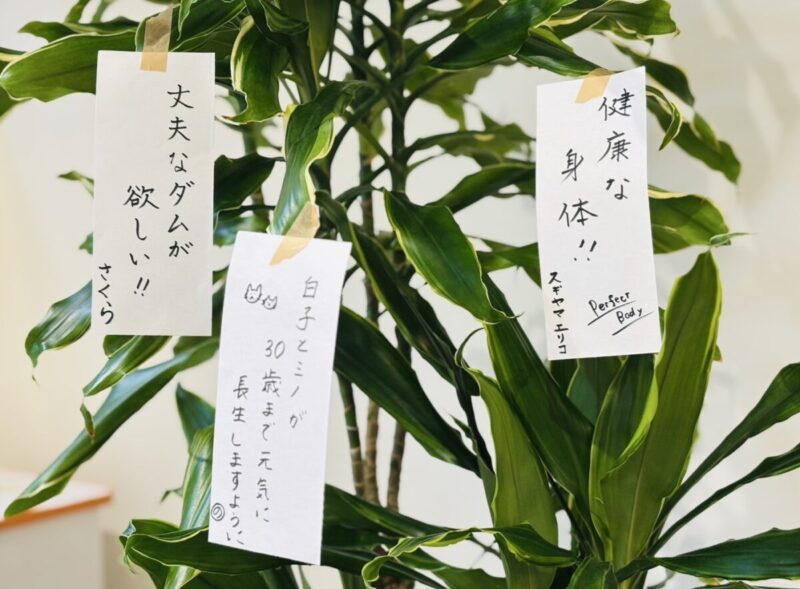 丈夫なダムが
欲しい!!
さくら
白子とミノが
30歳まで元気に
長生しますように
の
健康な
身体!!
Perfect
Body
スギヤマエリコ